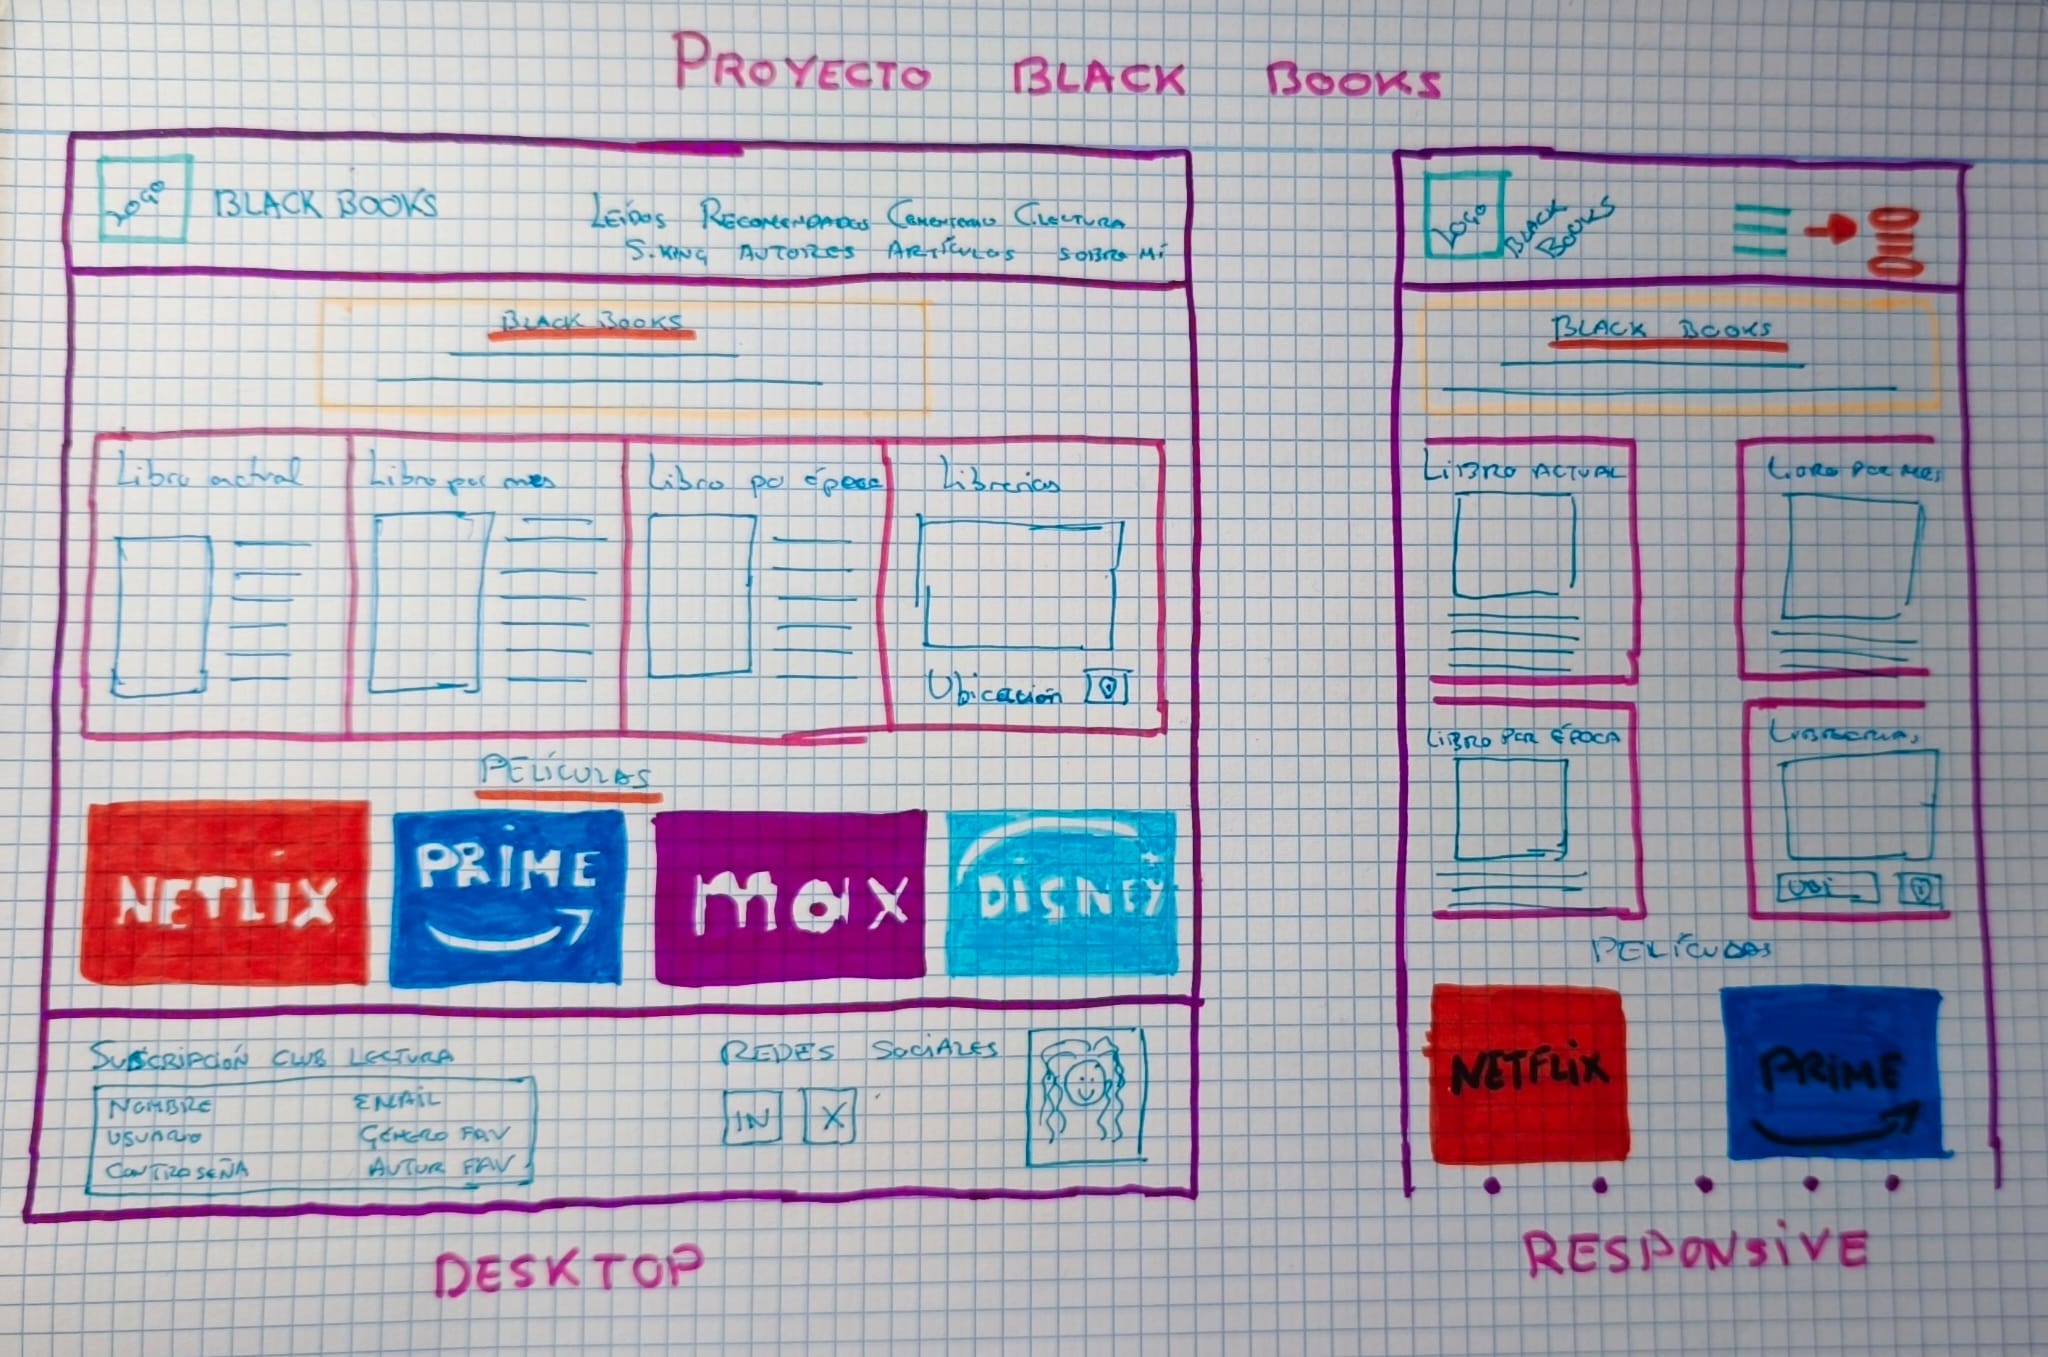 PROYECTO BLACK BOOKS
LOGO
BLACK BOOKS
LEÍDOS RECOMENDADOS CEMENTERIO C.LECTURA
S.KING AUTORES ARTÍCULOS SOBRE MÍ
BLACK BOOKS
Libro actual
Libro por mes
Libro po época
Librerias
Ubicación
PELÍCULAS
NETLIX
PRIME
max
DISNEY
SUSCRIPCIÓN CLUB LECTURA
NOMBRE EMAIL
USUARIO GÉNERO FAV
CONTRASEÑA AUTOR FAV
REDES SOCIALES
IN X
DESKTOP
LOGO
BLACK
BOOKS
BLACK BOOKS
LIBRO ACTUAL
LIBRO POR MES
LIBRO POR ÉPOCA
LIBRERIAS
UBI
PELÍCULAS
NETFLIX
PRIME
RESPONSIVE